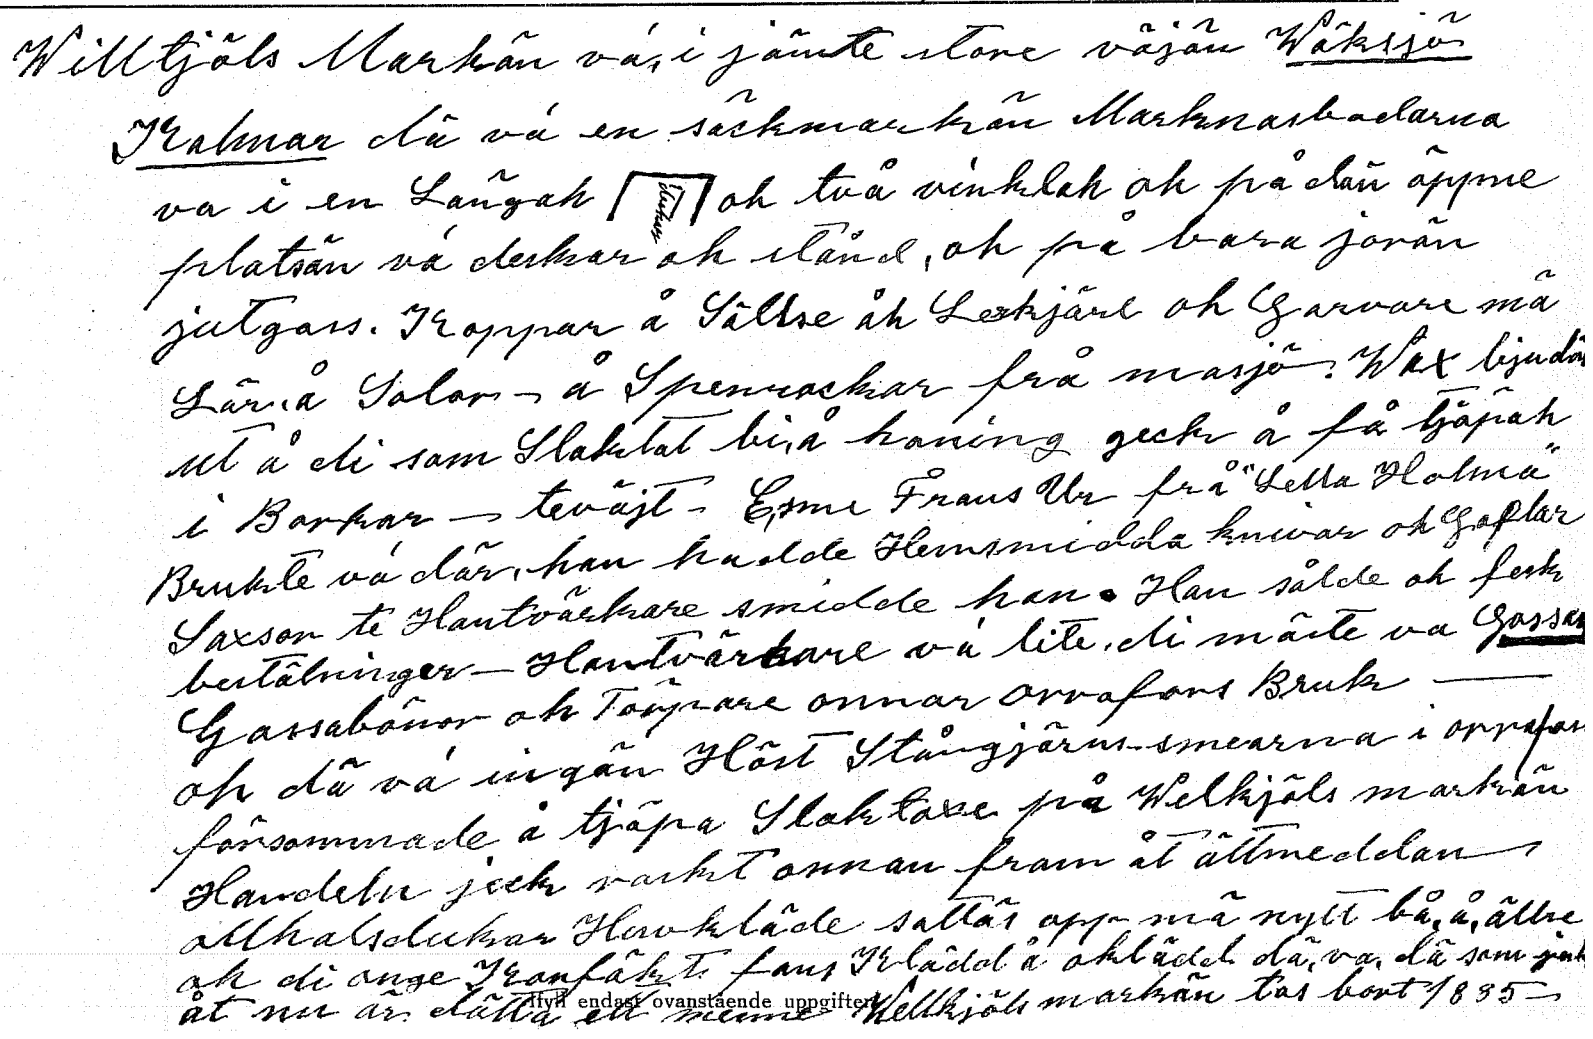 Willtjöls Markän vá, i jämte store väjän Wäksjö
Kalmar dä vá en säckmarkän Marknasbodarna
va i en Längah oh två vinklah oh på dän öppne
platsän vá deskar oh stånd, oh på bara jorän
jutgass. Kroppar å Sällse åh Lerkjärl oh Garvare mä
Lär, å Solor - å Spenrockar frå masjö. Wax bjudäs
ut å di som Slaktat bi, å honing geck å få tjöpah
i Borkar - teväjt - Esme Frans Ur frå "Lella Holma"
Brukte vá där, han hadde Hemsmidda knivar oh Gaflar
Saxsor te Hantvärkare smidde han. Han sålde oh fesk
bestälninger - Hantvärkare vá lite, di mäste va Gassar
Gassabönor oh Törpare onnar Orrafors Bruk —
oh dä vá ingän Höst Stångjärns-smearna i orrafors
försommade å tjöpa Slaktoxe på Welkjöls markän
Handeln jeck raskt onnan fram åt ättmeddan
ollhalsdukar Huvkläde sattäs opp mä nytt bå, å, ällre
oh di onge Kronfäkt fans Klädd å oklädd dä, va, dä som jeck
åt nu är dätta ett menne Wellkjöls markän tos bort 1885 -
Ifyll endast ovanstående uppgifter!